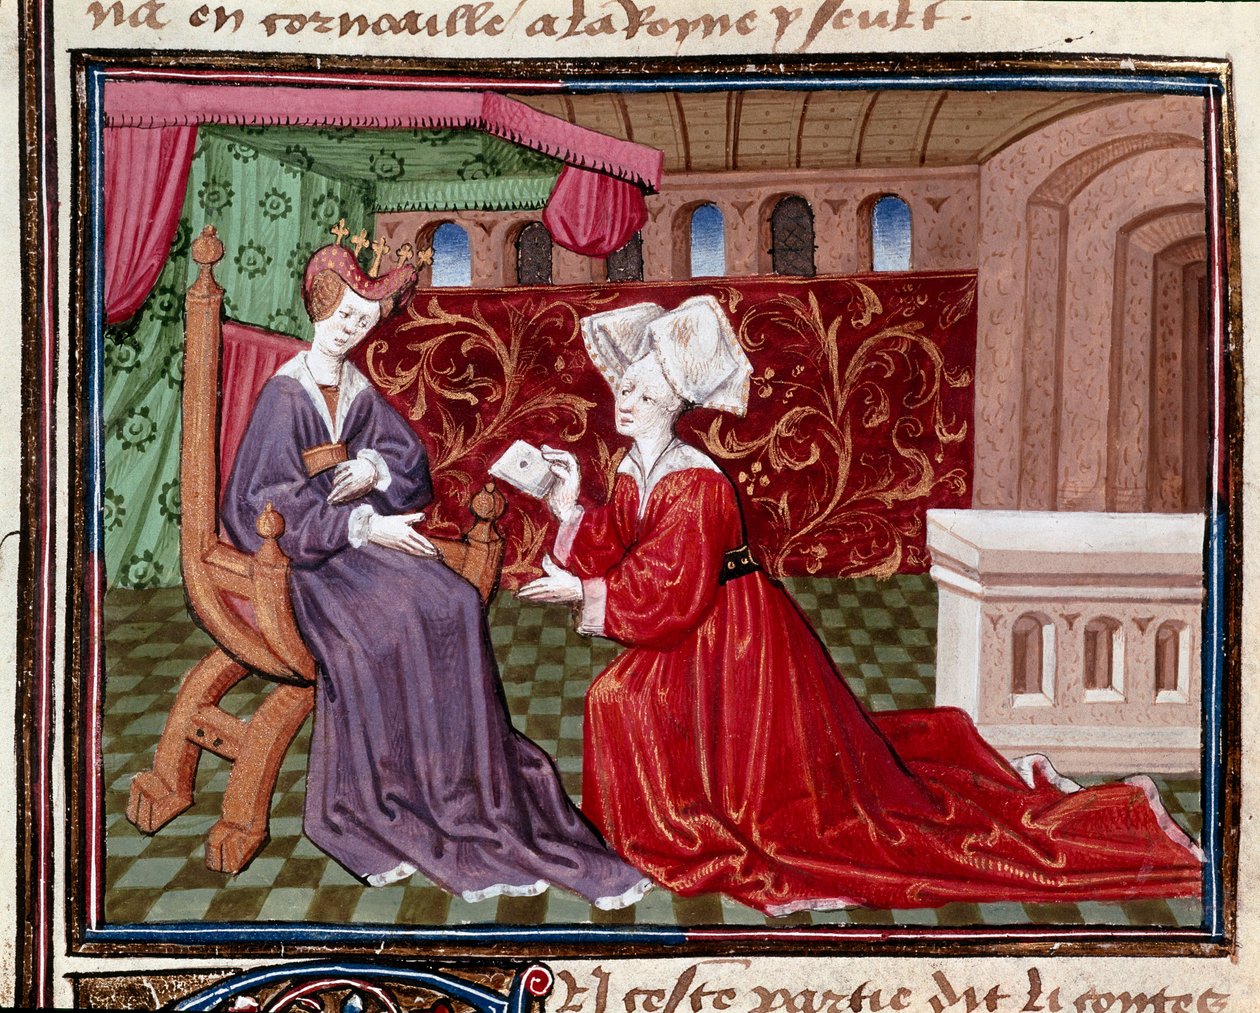 na en cornouaille a la Royne yseult.
En ceste partie dit li contes